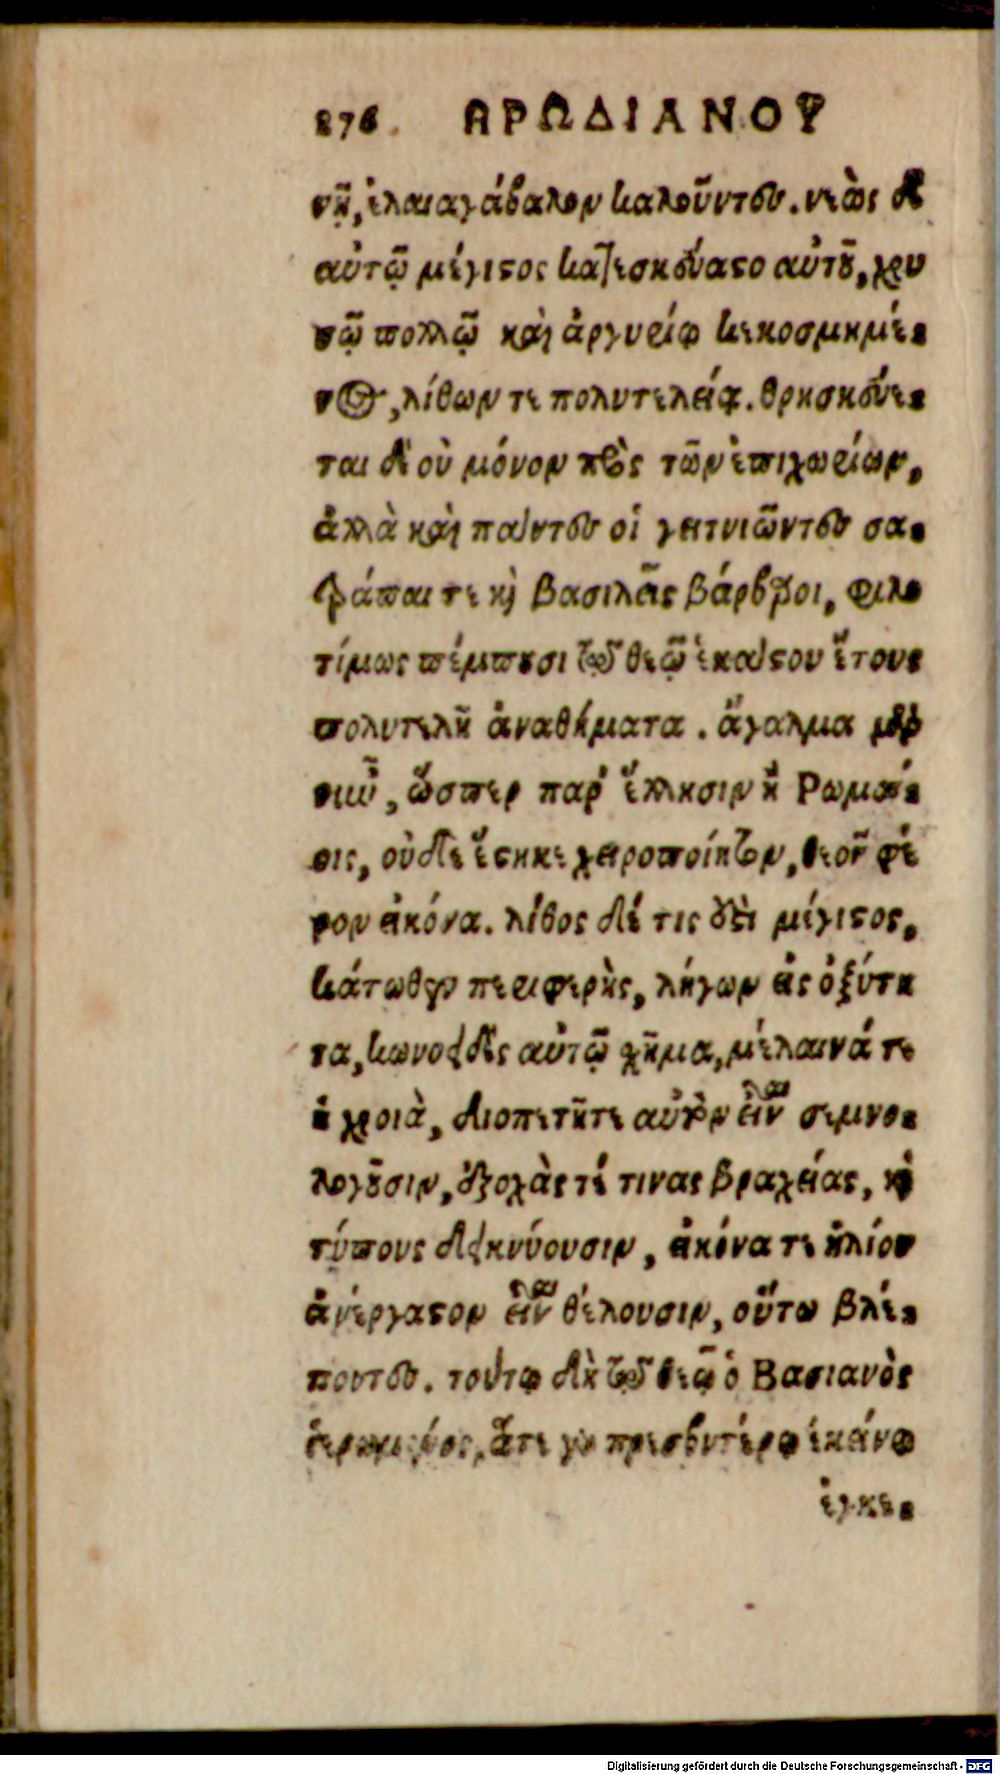 276 ΗΡΩΔΙΑΝΟΥ
νῇ, ἐλαιαγάβαλον καλοῦντες. νεὼς δὲ
αὐτῷ μέγιστος κατεσκεύαστο αὐτοῦ, χρυ
σῷ πολλῷ καὶ ἀργυρίῳ κεκοσμημέ-
νος, λίθων τε πολυτελείᾳ. θρησκεύε-
ται δ' οὐ μόνον πρὸς τῶν ἐπιχωρίων,
ἀλλὰ καὶ πάντες οἱ γειτνιῶντες σα-
τράπαι τε καὶ βασιλεῖς βάρβαροι, φιλο
τίμως πέμπουσι τῷ θεῷ ἑκάστου ἔτους
πολυτελῆ ἀναθήματα. ἄγαλμα μὲν
οὖν, ὥσπερ παρ' ἕλλησιν ἢ Ρωμαί-
οις, οὐδὲ ἕστηκε χειροποίητον, θεοῦ φέ
ρον εἰκόνα. λίθος δέ τις ἐστὶ μέγιστος,
κάτωθεν περιφερὴς, λήγων εἰς ὀξύτη
τα, κωνοειδὲς αὐτῷ σχῆμα, μέλαινά τε
ἡ χροιὰ, διοπετῆ τε αὐτὸν εἶναι σεμνο-
λογοῦσιν, ἐξοχάς τέ τινας βραχείας, καὶ
τύπους δεικνύουσιν, εἰκόνα τε ἡλίου
ἀνέργαστον εἶναι θέλουσιν, οὕτω βλέ-
ποντες. τούτῳ δὴ τῷ θεῷ ὁ Βασιανὸς
ἱερωμένος, ἅτε γὰρ πρεσβυτέρῳ ἐκείνῳ
ἐγκε-
Digitalisierung gefördert durch die Deutsche Forschungsgemeinschaft - DFG